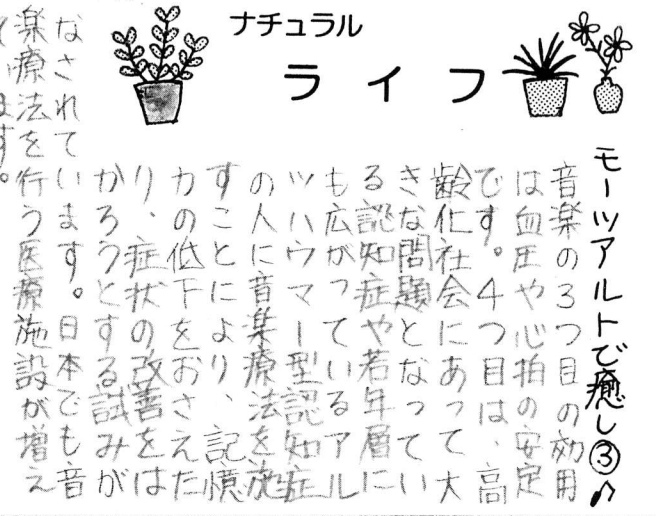 ナチュラル
ライフ
モーツアルトで癒し③♪
音楽の3つ目の効用
は血圧や心拍の安定
です。4つ目は、高
齢化社会にあって大
きな問題となってい
る認知症や若年層に
も広がっているアル
ツハウマー型認知症
の人に音楽療法を施
すことにより、記憶
力の低下をおさえた
り、症状の改善をは
かろうとする試みが
なされています。日本でも音
楽療法を行う医療施設が増え
ます。